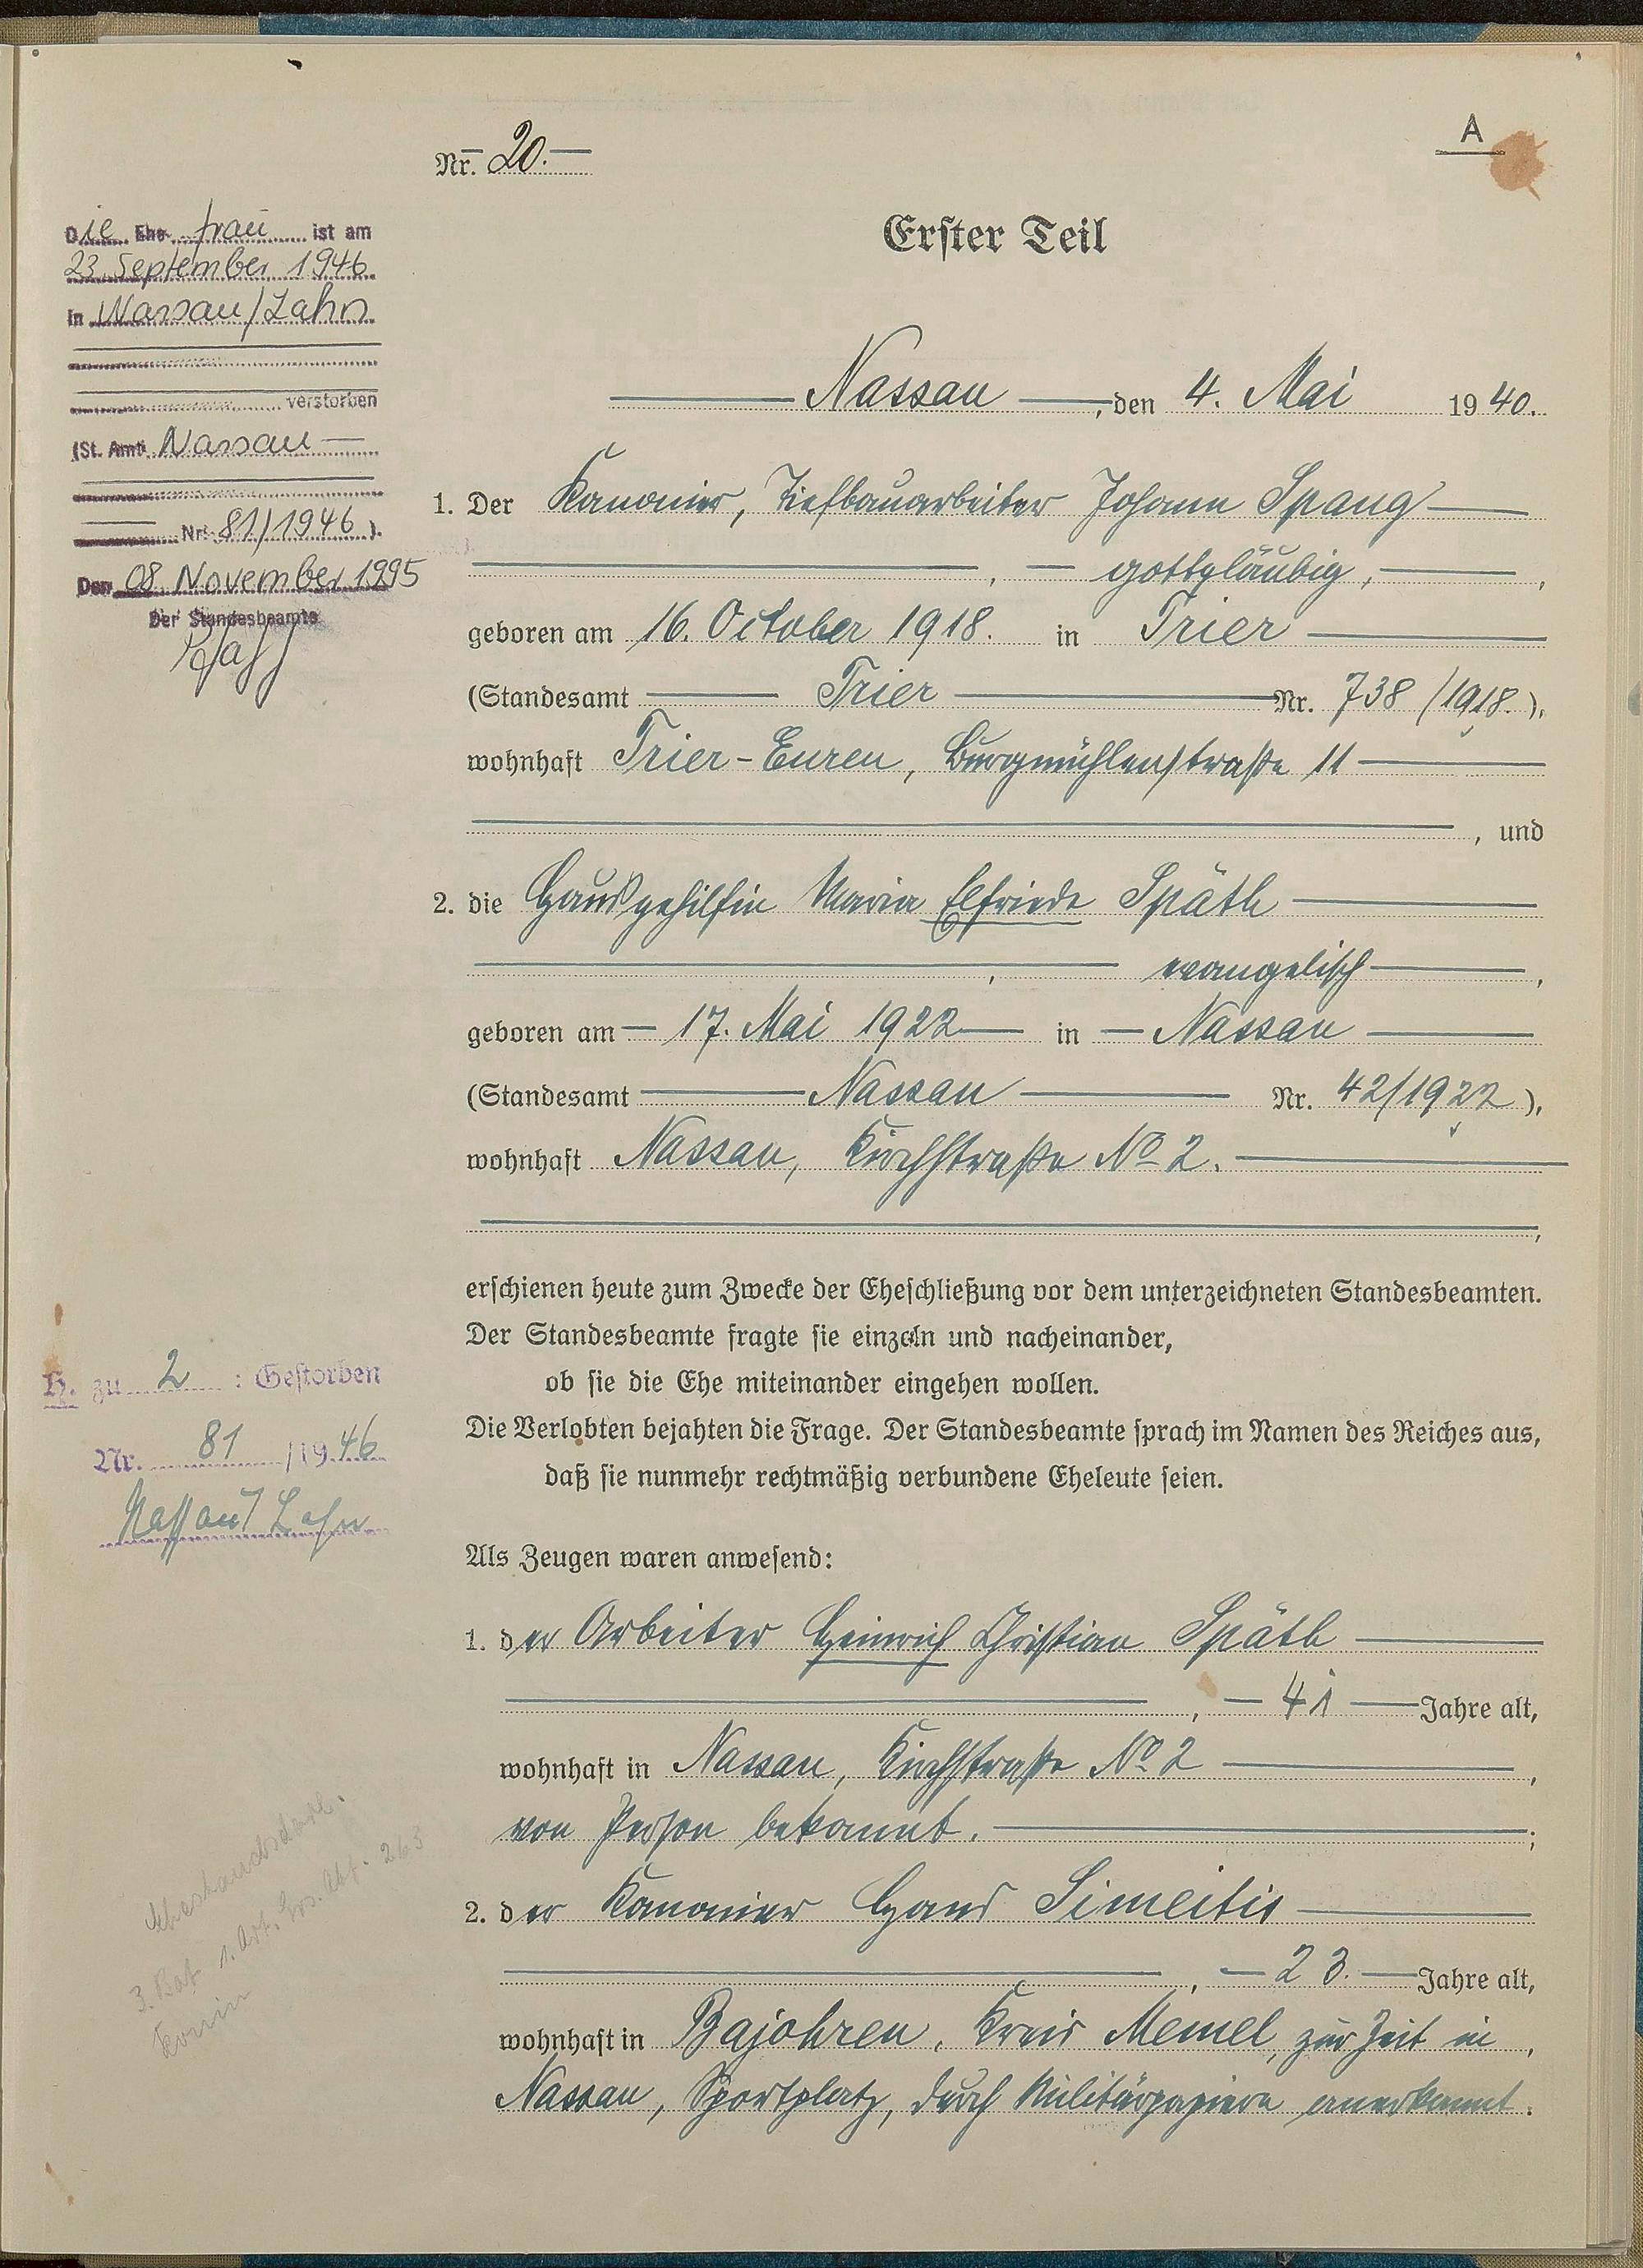 A
Nr. 20.
Erster Teil
Die Ehefrau ist am
23. September 1946
in Nassau/Lahn
verstorben
(St. Amt Nassau
Nr. 81/1946).
Den 08. November 1995
Der Standesbeamte
Nassau, den 4. Mai 1940.
1. Der Kanonier, Tiefbauarbeiter Johann Spang
, gottgläubig,
geboren am 16. October 1918. in Trier
(Standesamt Trier Nr. 738/1918.),
wohnhaft Trier-Euren, Burgmühlenstraße 11
, und
2. die Hausgehilfin Maria Elfriede Späth
, evangelisch,
geboren am 17. Mai 1922 in Nassau
(Standesamt Nassau Nr. 42/1922),
wohnhaft Nassau, Kirchstraße No 2.
,
erschienen heute zum Zwecke der Eheschließung vor dem unterzeichneten Standesbeamten.
Der Standesbeamte fragte sie einzeln und nacheinander,
ob sie die Ehe miteinander eingehen wollen.
Die Verlobten bejahten die Frage. Der Standesbeamte sprach im Namen des Reiches aus,
daß sie nunmehr rechtmäßig verbundene Eheleute seien.
H. zu 2 : Gestorben
Nr. 81 /1946
Nassau/Lahn
Als Zeugen waren anwesend:
1. der Arbeiter Heinrich Christian Späth
, 41 Jahre alt,
wohnhaft in Nassau, Kirchstraße No 2,
von Person bekannt.;
2. der Kanonier Hans Simeitis
, 23. Jahre alt,
wohnhaft in Bajohren, Kreis Memel, zur Zeit in,
Nassau, Sportplatz, durch Militärpapiere anerkannt.
3. Bat. 1. Art. Ers. Abt. 265